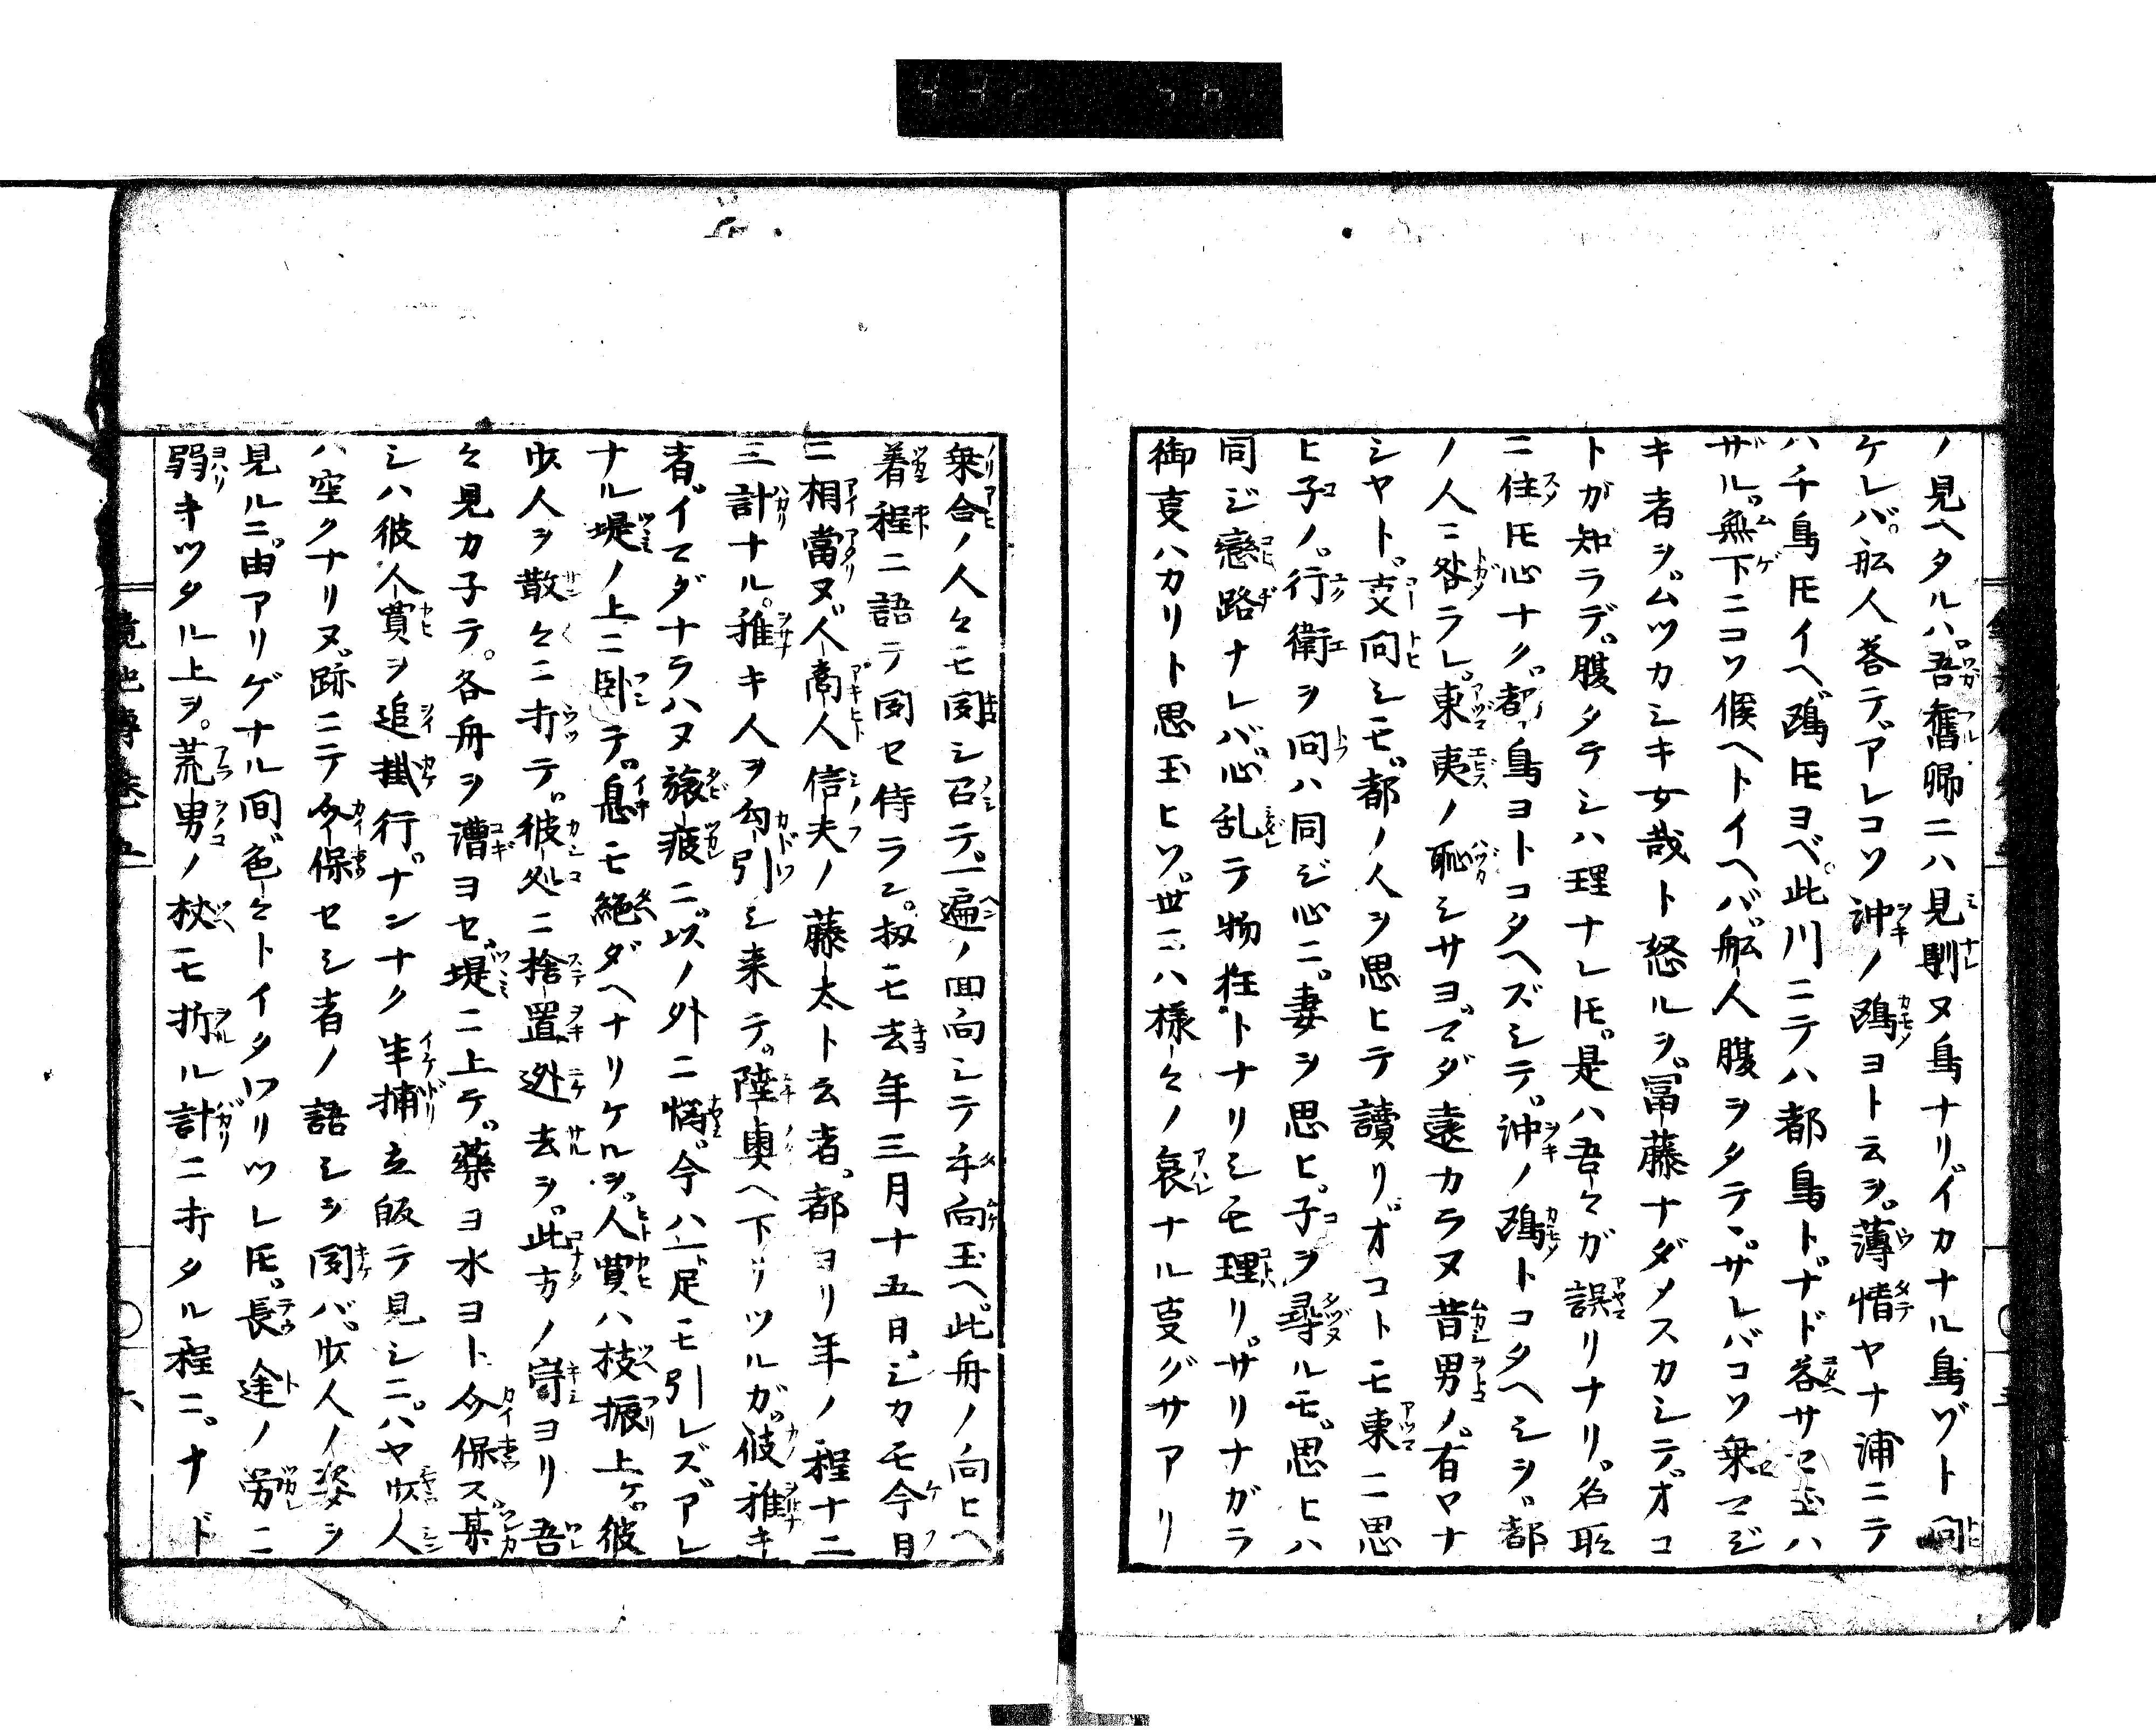 ノ見ヘタルハ。吾舊郷ニハ見馴ヌ鳥ナリ。イカナル鳥ゾト問
ケレバ。舩人答テ。アレコソ沖ノ鴎ヨト云ヲ。薄情ヤナ浦ニテ
ハ千鳥トモイヘ。鴎トモヨベ。此川ニテハ都鳥ト。ナド答サセ玉ハ
ザル。無下ニコソ候ヘトイヘバ。舩人腹ヲタテ。サレバコソ乗マジ
キ者ヲ。ムツカシキ女哉ト怒ルヲ。冨藤ナダメスカシテ。オコ
トガ知ラデ。腹タテシハ理ナレトモ。是ハ吾々ガ誤リナリ。名所
ニ住トモ心ナク。都鳥ヨトコタヘズシテ。沖ノ鴎トコタヘシヲ。都
ノ人ニ咎ラレ。東夷ノ恥シサヨ。マダ遠カラヌ昔男ノ。有ヤナ
シヤト。支問シモ。都ノ人ヲ思ヒテ讀リ。オコトモ東ニ思
ヒ子ノ。行衛ヲ問ハ同ジ心ニ。妻ヲ思ヒ。子ヲ尋ルモ。思ヒハ
同ジ戀路ナレバ。心乱テ物狂トナリシモ理リ。サリナガラ
御支ハカリト思玉ヒソ。世ニハ様々ノ哀ナル支グサアリ
乗合ノ人々モ聞シ召テ。一遍ノ回向シテ手向玉ヘ。此舟ノ向ヒヘ
着程ニ語テ聞セ侍ラン。扨モ去年三月十五日。シカモ今日
ニ相當ヌ。人商人信夫ノ藤太ト云者。都ヨリ年ノ程十二
三計ナル。稚キ人ヲ勾引シ来テ。陸奥ヘ下リツルガ。彼稚キ
者。イマダナラハヌ旅疲ニ。以ノ外ニ悩。今ハ一足モ引レズアレ
ナル堤ノ上ニ臥テ。息モ絶ダヘナリケルヲ。人買ハ杖振上ケ。彼
少人ヲ散々ニ打テ。彼処ニ捨置迯去ヲ。此方ノ岸ヨリ吾
々見カ子テ。各舟ヲ漕ヨセ。堤ニ上テ。藥ヨ水ヨト。介保ス某
シハ彼人買ヲ追掛行。ナンナク生捕立皈テ見シニ。ハヤ少人
ハ空クナリヌ。跡ニテ介保セシ者ノ語シヲ聞バ。少人ノ姿ヲ
見ルニ。由アリゲナル間。色々トイタワリツレトモ。長途ノ労ニ
弱キツタル上ヲ。荒男ノ杖モ折ル計ニ打タル程ニ。ナド